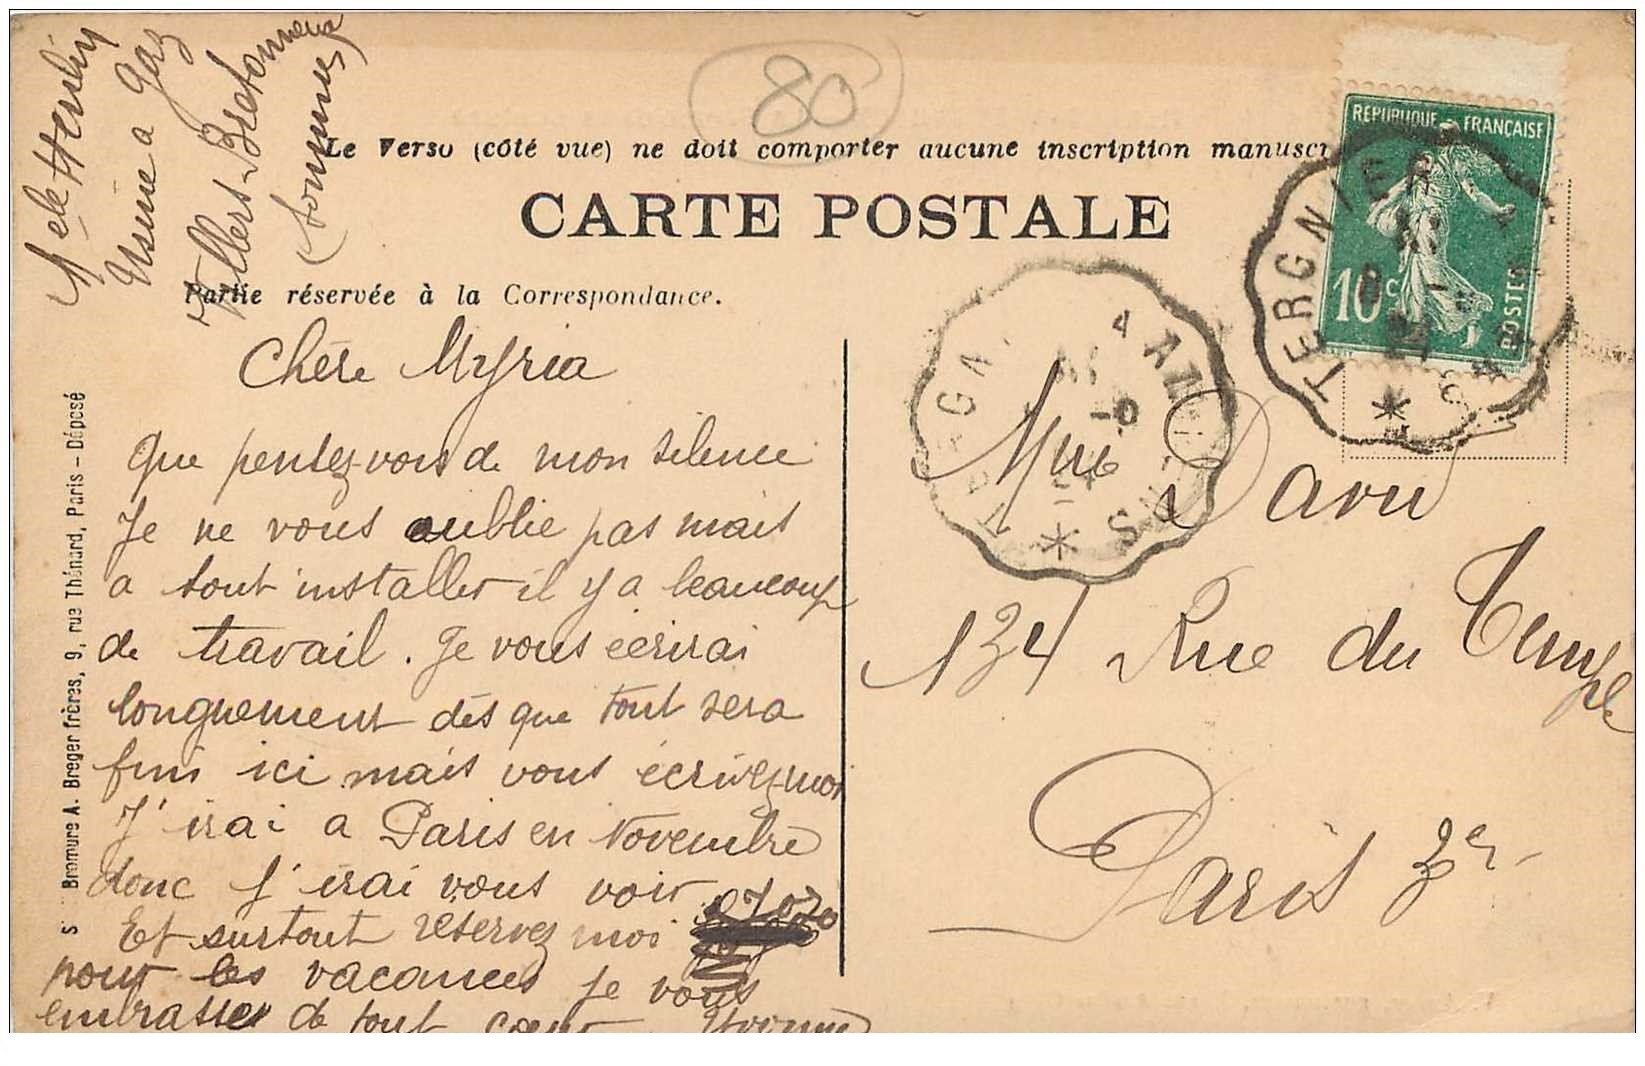 Melle Herbin
Usine a Gaz
Villers-Bretonneux
(Somme)
80
Le Verso (côté vue) ne doit comporter aucune inscription manuscr
CARTE POSTALE
Partie réservée à la Correspondance.
REPUBLIQUE FRANÇAISE
10 c
POSTES
TERGNIER
TERGN
A AMIENS
Chère Myria
Que pensez-vous de mon silence
Je ne vous oublie pas mais
a tout installer il y a beaucoup
de travail. Je vous écrirai
longuement dès que tout sera
fini ici mais vous écrivez-moi
J'irai a Paris en Novembre
donc j'irai vous voir
Et surtout réservez moi
pour les vacances je vous
embrasse de tout coeur Yvonne
Mme Davu
134 Rue du Temple
Paris 3e
S Bromure A. Breger frères, 9, rue Thénard, Paris - Déposé